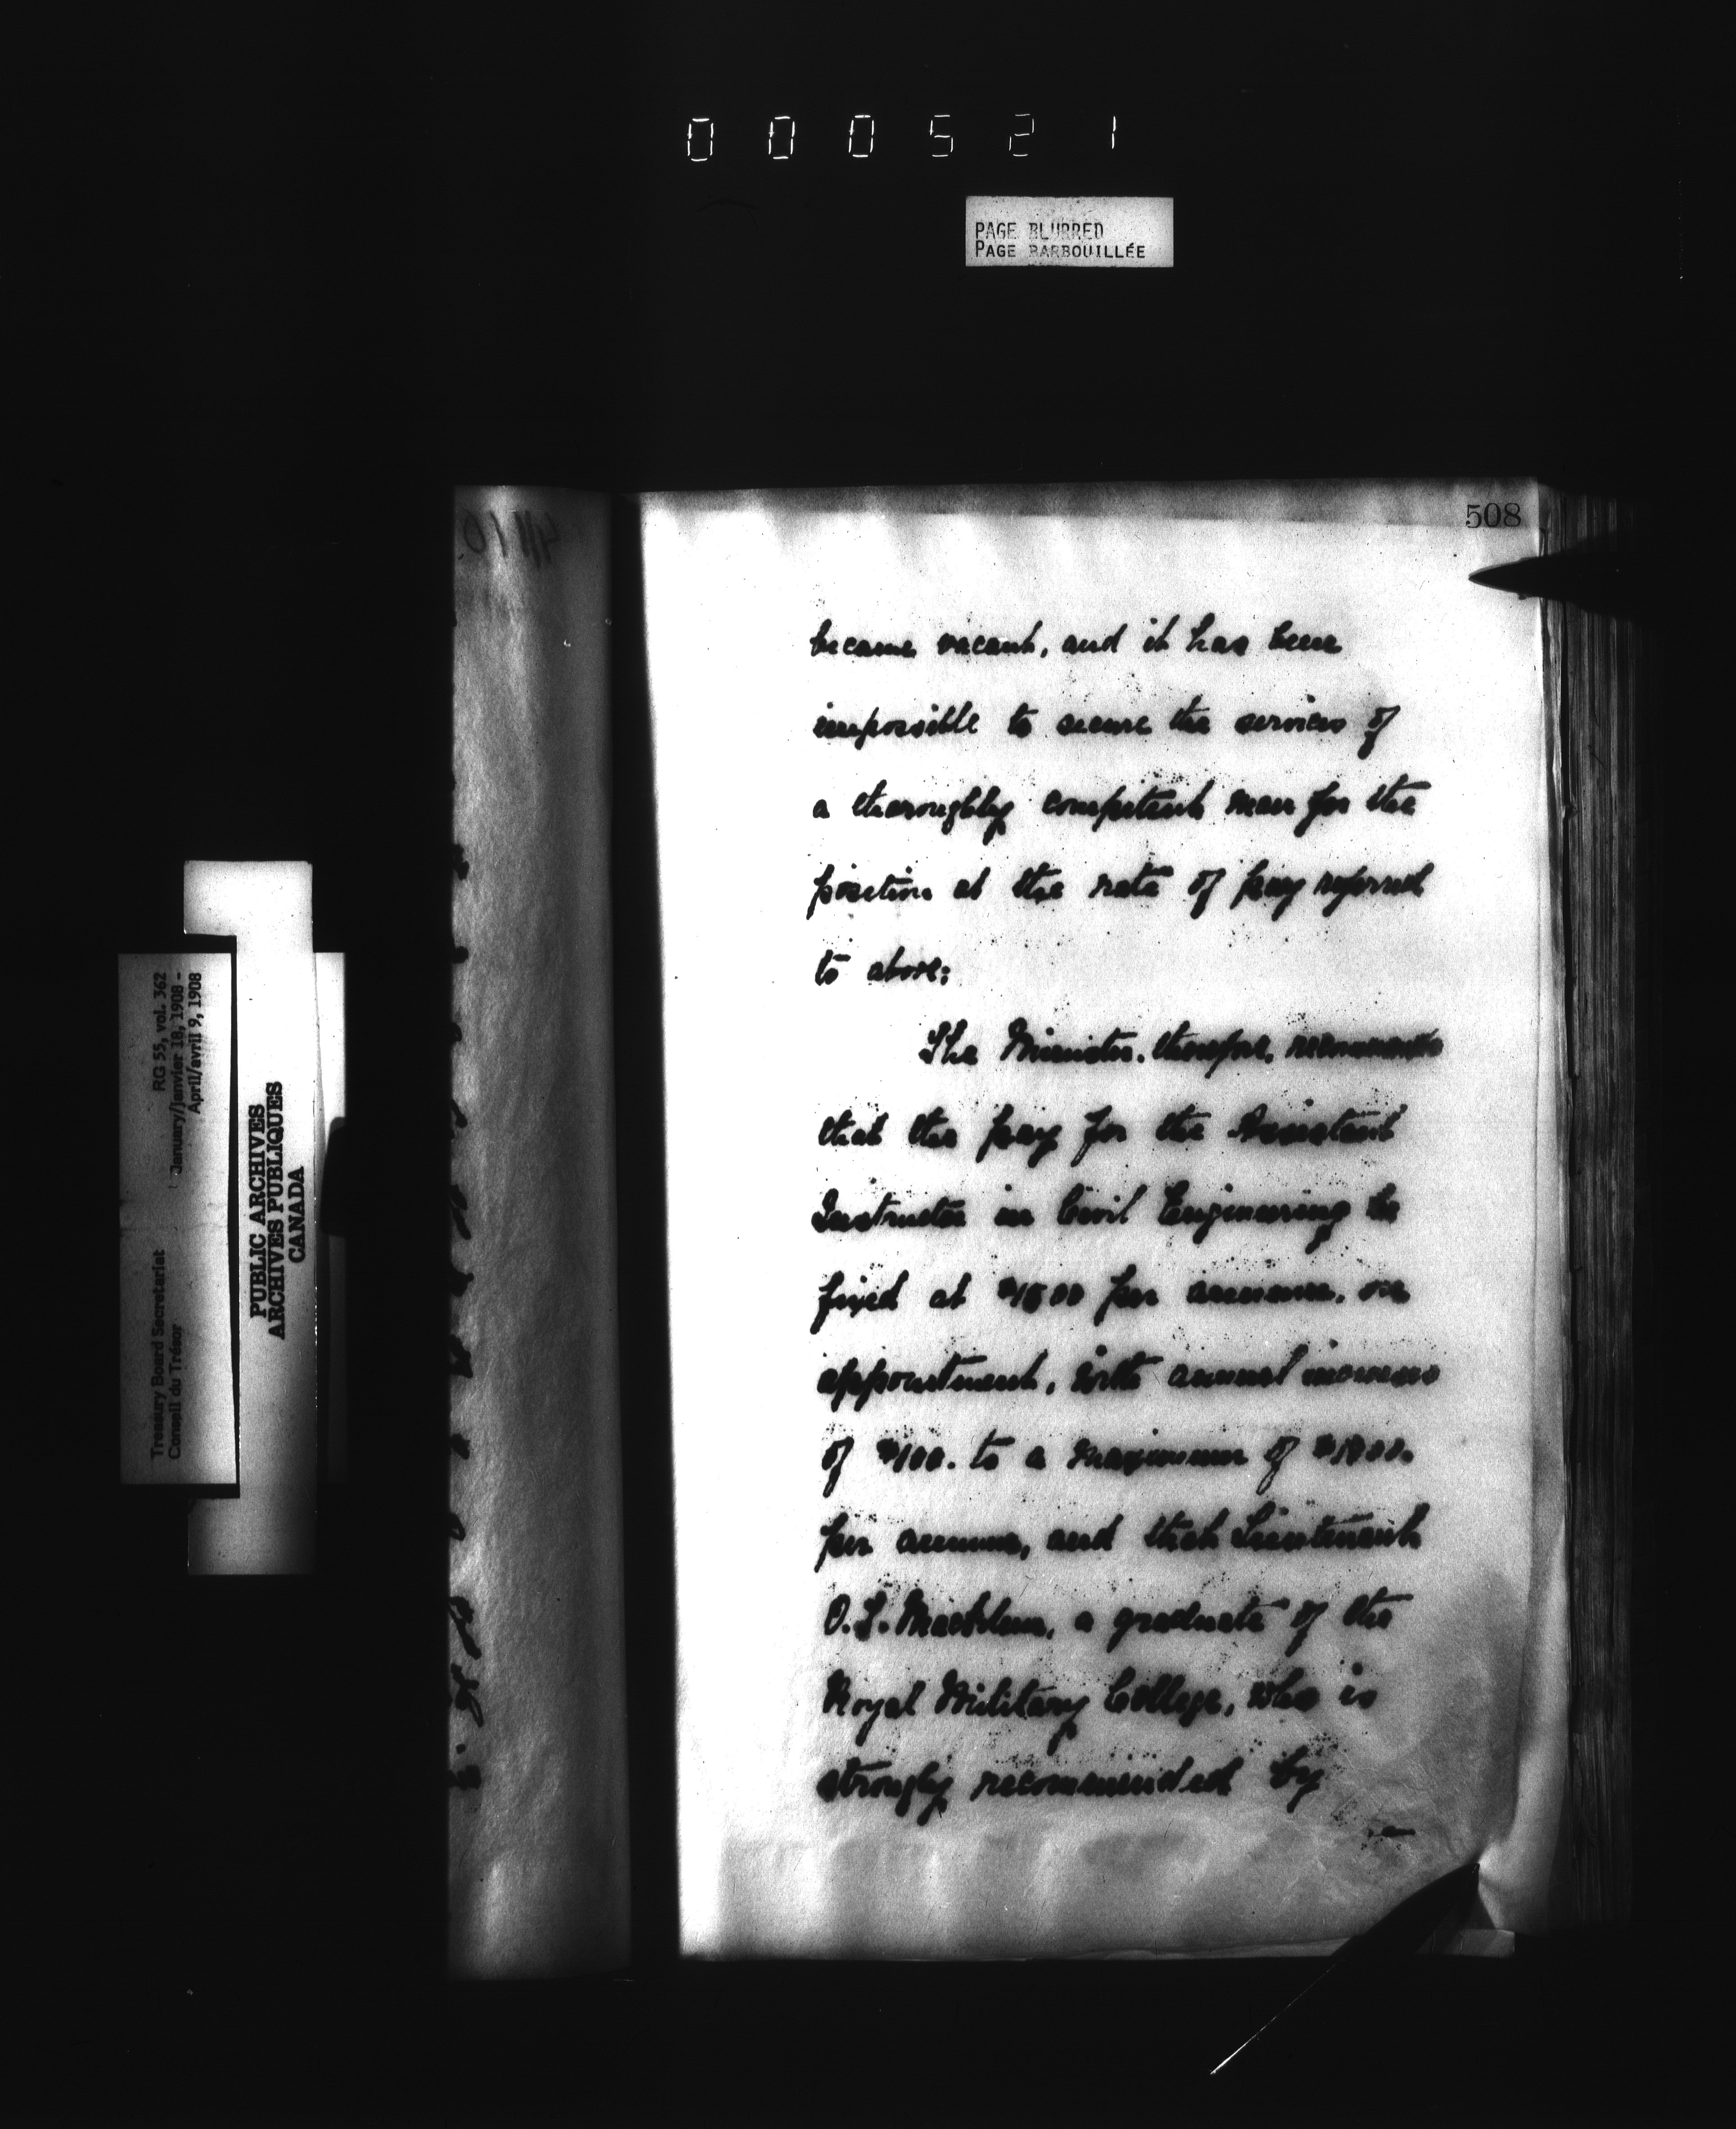 000521
PAGE BLURRED
PAGE BARBOUILLÉE
508
became vacant, and it has been
impossible to secure the services of
a thoroughly competent man for the
position at the rate of pay referred
to above:
The Minister, therefore, recommends
that the pay for the Assistant
Instructor in Civil Engineering be
fixed at $1500 per annum, on
appointment, with annual increases
of $100. to a maximum of $1800.
per annum, and that Lieutenant
O.S. a graduate of the
Royal Military College, who is
strongly recommended by
RG 55, vol. 362
January/janvier 18, 1908 -
April/avril 9, 1908
Treasury Board Secretariat
Conseil du Trésor
PUBLIC ARCHIVES
ARCHIVES PUBLIQUES
CANADA